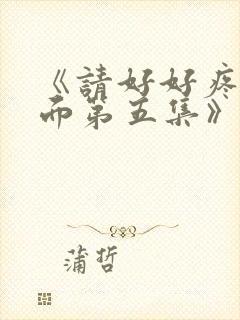 《請好好疼
而第五集》
蒲哲